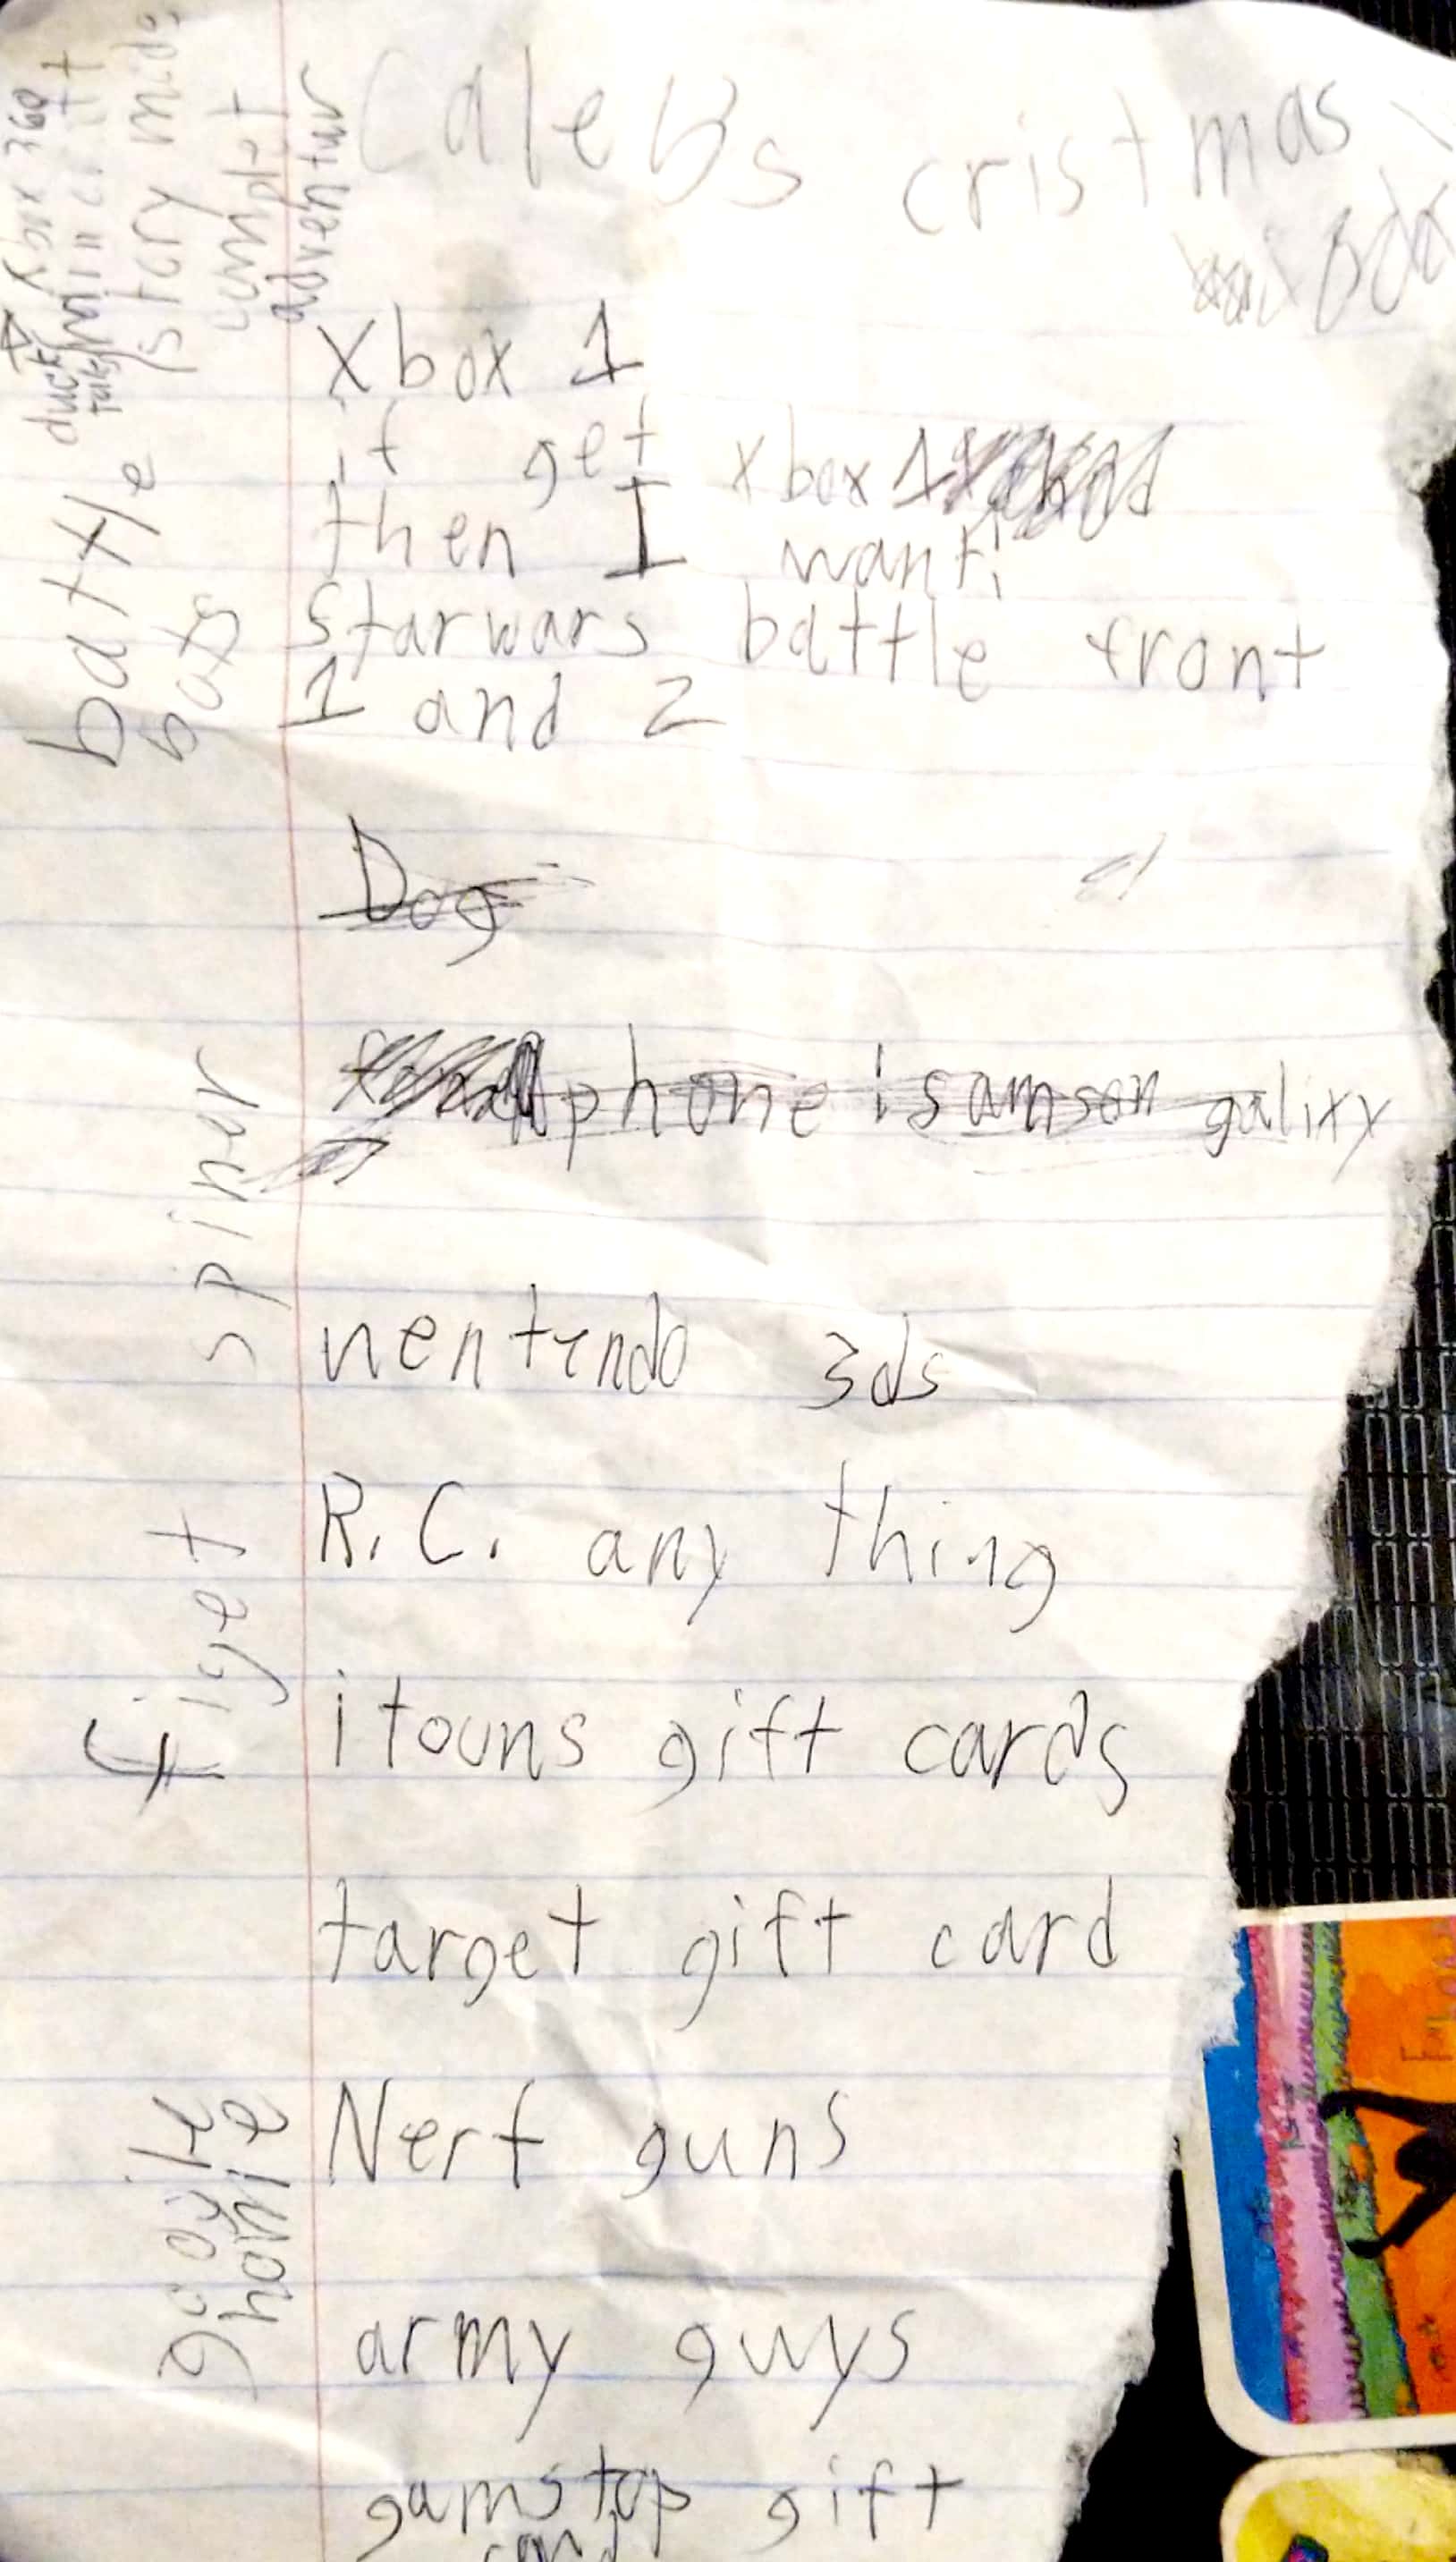 CaleBs cristmas
xbox 1
if get xbox 1
then I want:
starwars battle front
1 and 2
Dog
phone is amsan galixy
nentendo 3ds
R.C. any thing
itouns gift cards
target gift card
Nerf guns
army guys
gamstop gift
card
xbox 360
duck
minecraft
story mide
complet
adventur
battle
bots
figet spiner
google
home